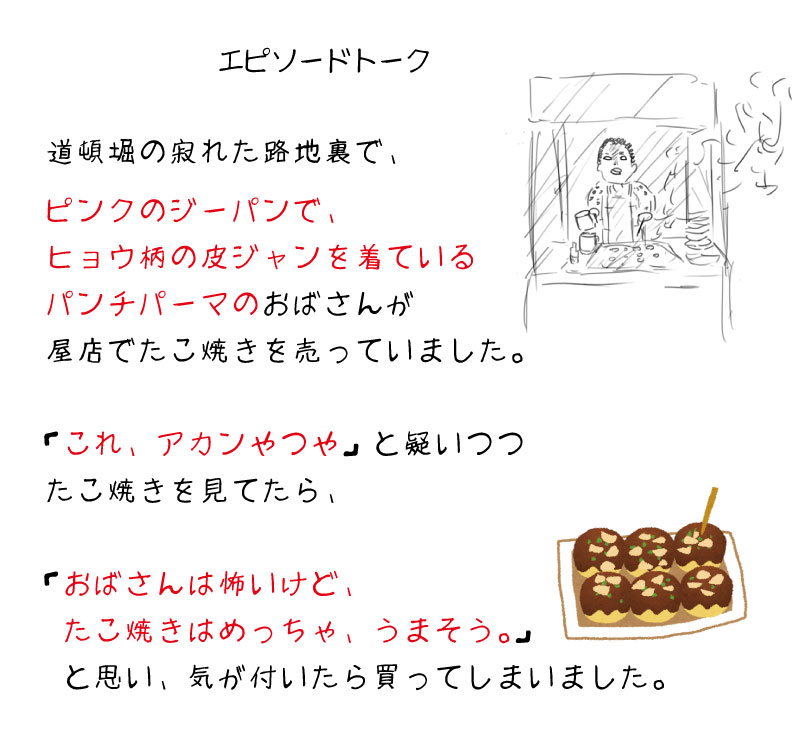 エピソードトーク
道頓堀の寂れた路地裏で、
ピンクのジーパンで、
ヒョウ柄の皮ジャンを着ている
パンチパーマのおばさんが
屋店でたこ焼きを売っていました。
『これ、アカンやつや』と疑いつつ
たこ焼きを見てたら、
『おばさんは怖いけど、
たこ焼きはめっちゃ、うまそう。』
と思い、気が付いたら買ってしまいました。